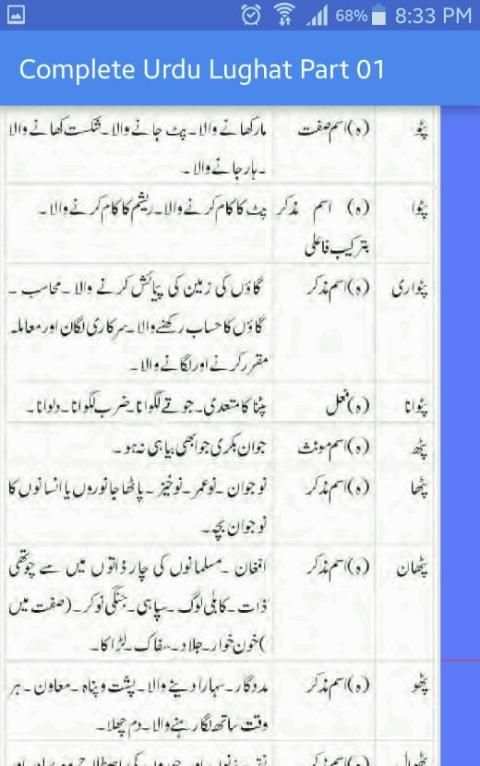 68% 8:33 PM
Complete Urdu Lughat Part 01
پٹو (ہ) اسم صفت مار کھانے والا۔ پٹ جانے والا۔ شکست کھانے والا
۔ ہار جانے والا۔
پٹوا (ہ) اسم مذکر پٹ کا کام کرنے والا۔ ریشم کا کام کرنے والا۔
بترکیب فاعلی
پٹواری (ہ) اسم مذکر گاؤں کی زمین کی پیمائش کرنے والا۔ محاسب۔
گاؤں کا حساب رکھنے والا۔ سرکاری لگان اور معاملہ
مقرر کرنے اور لگانے والا۔
پٹوانا (ہ) فعل پٹنا کا متعدی۔ جوتے لگوانا۔ ضرب لگوانا۔ دلوانا۔
پٹھ (ہ) اسم مونث جوان بکری جو ابھی بیاہی نہ ہو۔
پٹھا (ہ) اسم مذکر نوجوان۔ نوعمر۔ نوخیز۔ پاٹھا جانوروں یا انسانوں کا
نوجوان بچہ۔
پٹھان (ہ) اسم مذکر افغان۔ مسلمانوں کی چار ذاتوں میں سے چوتھی
ذات۔ کابلی لوگ۔ سپاہی۔ جنگی نوکر۔ (صفت میں
) خون خوار۔ جلاد۔ سفاک۔ لڑاکا۔
پٹھو (ہ) اسم مذکر مددگار۔ سہارا دینے والا۔ پشت و پناہ۔ معاون۔ ہر
وقت ساتھ لگا رہنے والا۔ دم چھلا۔